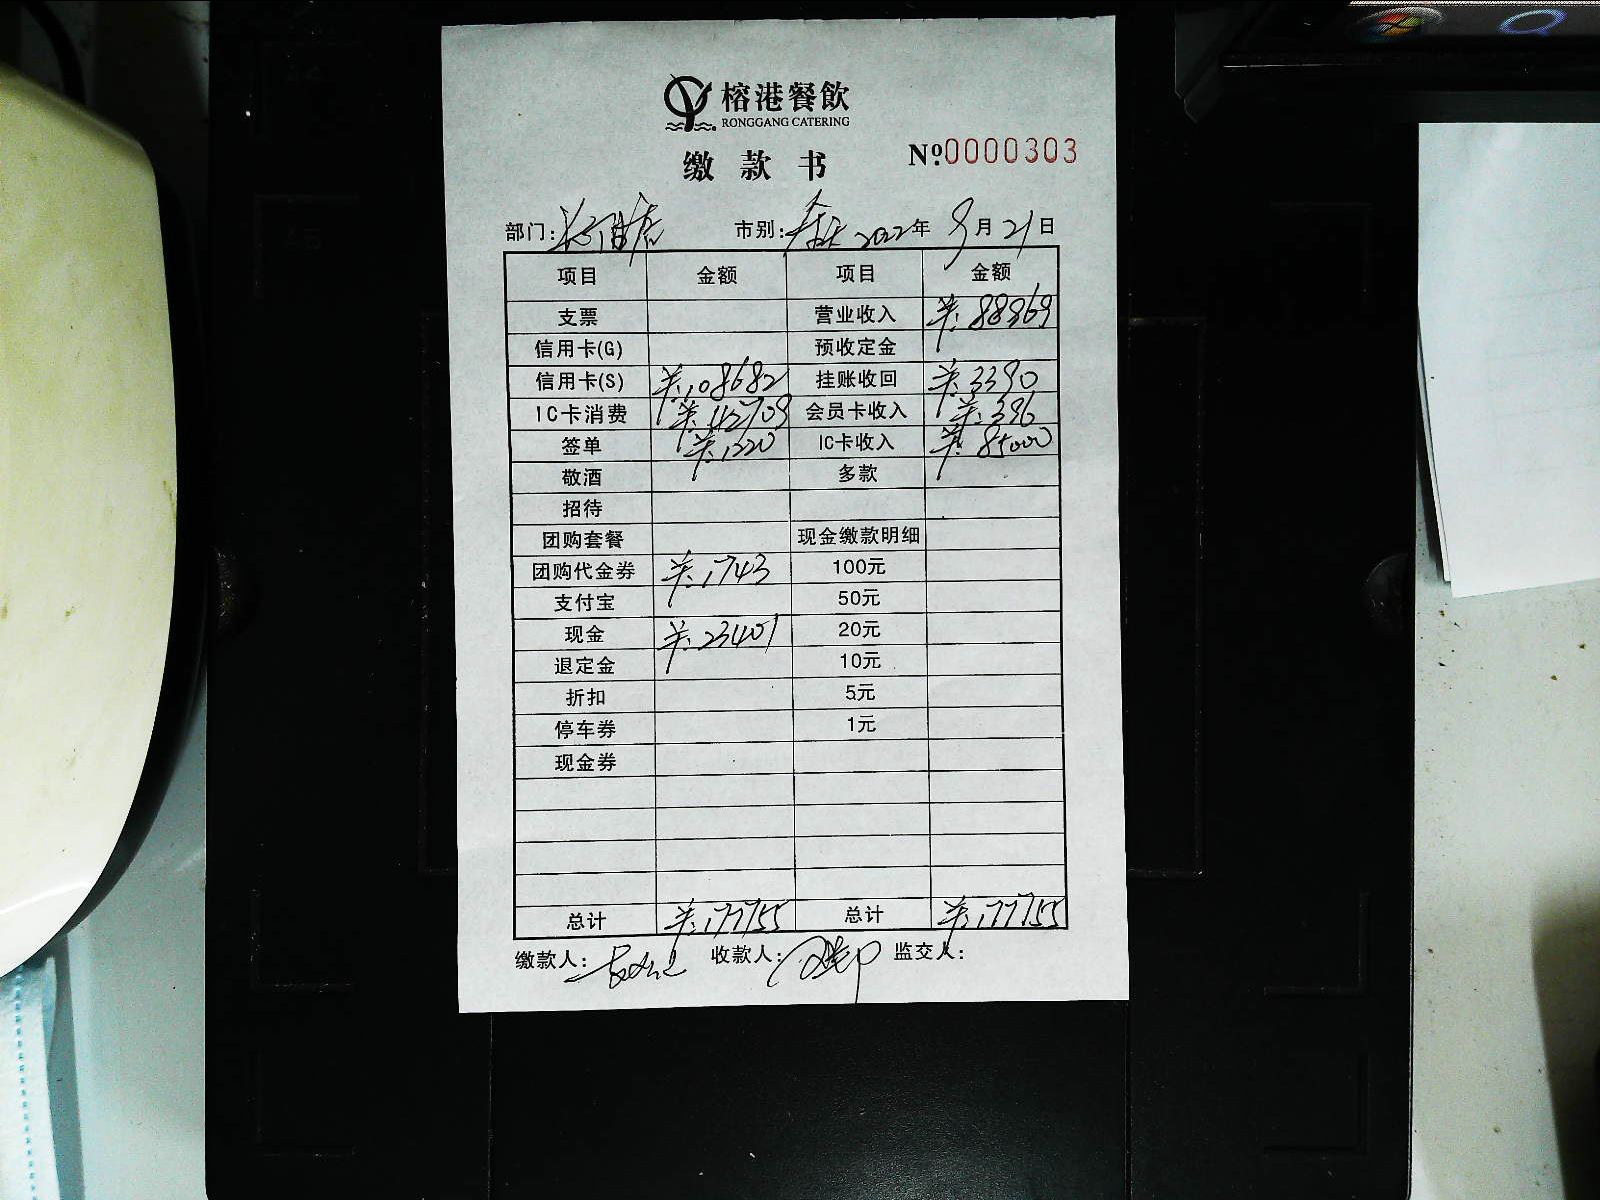 榕港餐飲
RONGGANG CATERING
缴款书 №0000303
部门: 市别: 全天 2022年 9月21日
项目 金额 项目 金额
支票 营业收入 羊:88969
信用卡(G) 预收定金
信用卡(S) 羊:108682 挂账收回 羊:3390
IC卡消费 羊:42709 会员卡收入 羊:396
签单 羊:1220 IC卡收入 羊:85000
敬酒 多款
招待
团购套餐 现金缴款明细
团购代金券 羊:1743 100元
支付宝 50元
现金 羊:23401 20元
退定金 10元
折扣 5元
停车券 1元
现金券
总计 羊:177755 总计 羊:177755
缴款人: 收款人: 监交人: